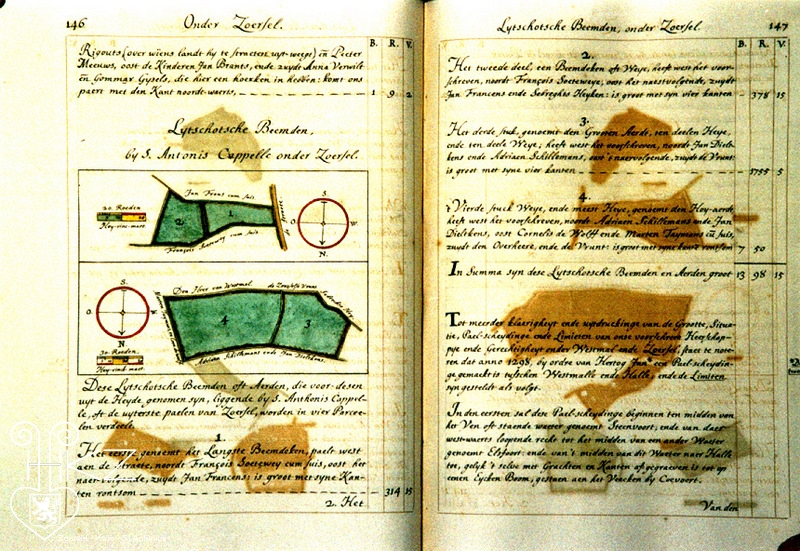 146
Onder Zoersel.
B. R. V.
Rigouts (over wiens landt hy te
Meeuws, oost de Kinderen Jan Brants, ende zuydt Anna Verwilt
en Gommar Gysels, die hier een hoecken in hebben: komt ons
paert met den Kant noordt-waerts, 1 9 2
Lytschotsche Beemden,
by S. Antonis Cappelle onder Zoersel.
20. Roeden
Jan Frans cum suis
2
1
S
O
W
N.
François cum suis
S.
O
W
N
30. Roeden.
Den Heer van Wermal
4
3
Adriaen Schillemans ende Jan Dielekens
Dese Lytschotsche Beemden oft Aerden, die voor-desen
uyt de Heyde genomen syn, liggende by S. Anthonis Cappel-
le, oft de uyterste paelen van Zoersel, worden in vier Percee-
len verdeelt.
1.
Het eerste genoemt het Langste Beemdeken, paelt west
aen de Straete, noordt François Soetewey cum suis, oost het
naer-volgende, zuydt Jan Francens: is groot met syne Kan-
ten rontsom 314 15
2. Het
Lytschotsche Beemden, onder Zoersel.
147
B. R. V.
2.
Het tweede deel, een Beemdeken oft Weye, heeft west het voor-
schreven, noordt François Soeteweye, oost het naestvolgende, zuydt
Jan Francens ende Heyken: is groot met syn vier kanten 378 15
3.
Het derde stuk, genoemt den Grooten Aerdt, ten deelen Heye,
ende ten deele Weye; heeft west het voorschreven, noordt Jan Diele-
kens ende Adriaen Schillemans, oost 't naervolgende, zuydt de Vrunt:
is groot met syn vier kanten 5
4.
't Vierde stuck Weye, ende meest Heye, genoemt den Hoy-aerdt
heeft west het voorschreven, noordt Adriaen Schillemans ende Jan
Dielekens, oost Cornelis de Wolff ende Marten Taymans en suis,
zuydt den Overheere, ende de Vrunt: is groot met syne kante rontsom 7 50
In Summa syn dese Lytschotsche Beemden en Aerden groot 13 98 15
Tot meerder klaerigheyt ende uytdruckinge van de Grootte, Situa-
tie, Pael-scheydinge ende Limieten van onse voorschreven Heerschap-
pye ende Gerechtigheyt onder Westmal ende Zoersel, staet te note-
ren dat anno 1298, by ordre van Hertog Jan een Pael-scheydin-
ge gemaekt is tusschen Westmalle ende Halle, ende de Limiten
syn gestelt als volgt.
In den eersten sal dese Pael-scheydinge beginnen ten midden van
het Ven oft staende waeter genoemt Steenvoort, ende van daer
westwaerts loopende recht tot het midden van een ander Waeter
genoemt Elsfoort: ende van 't midden van dit Waeter naer Halle
toe, gelyk 't selve met Grachten en Kanten afgegraeven is tot op
eenen Eycken Boom, gestaen aen het Veecken by Coevoert.
Van den